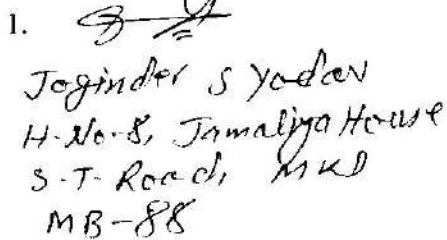 1.
Joginder S Yadav
H-No-8, Jamaliya House
S-T- Road, MKD
MB-88